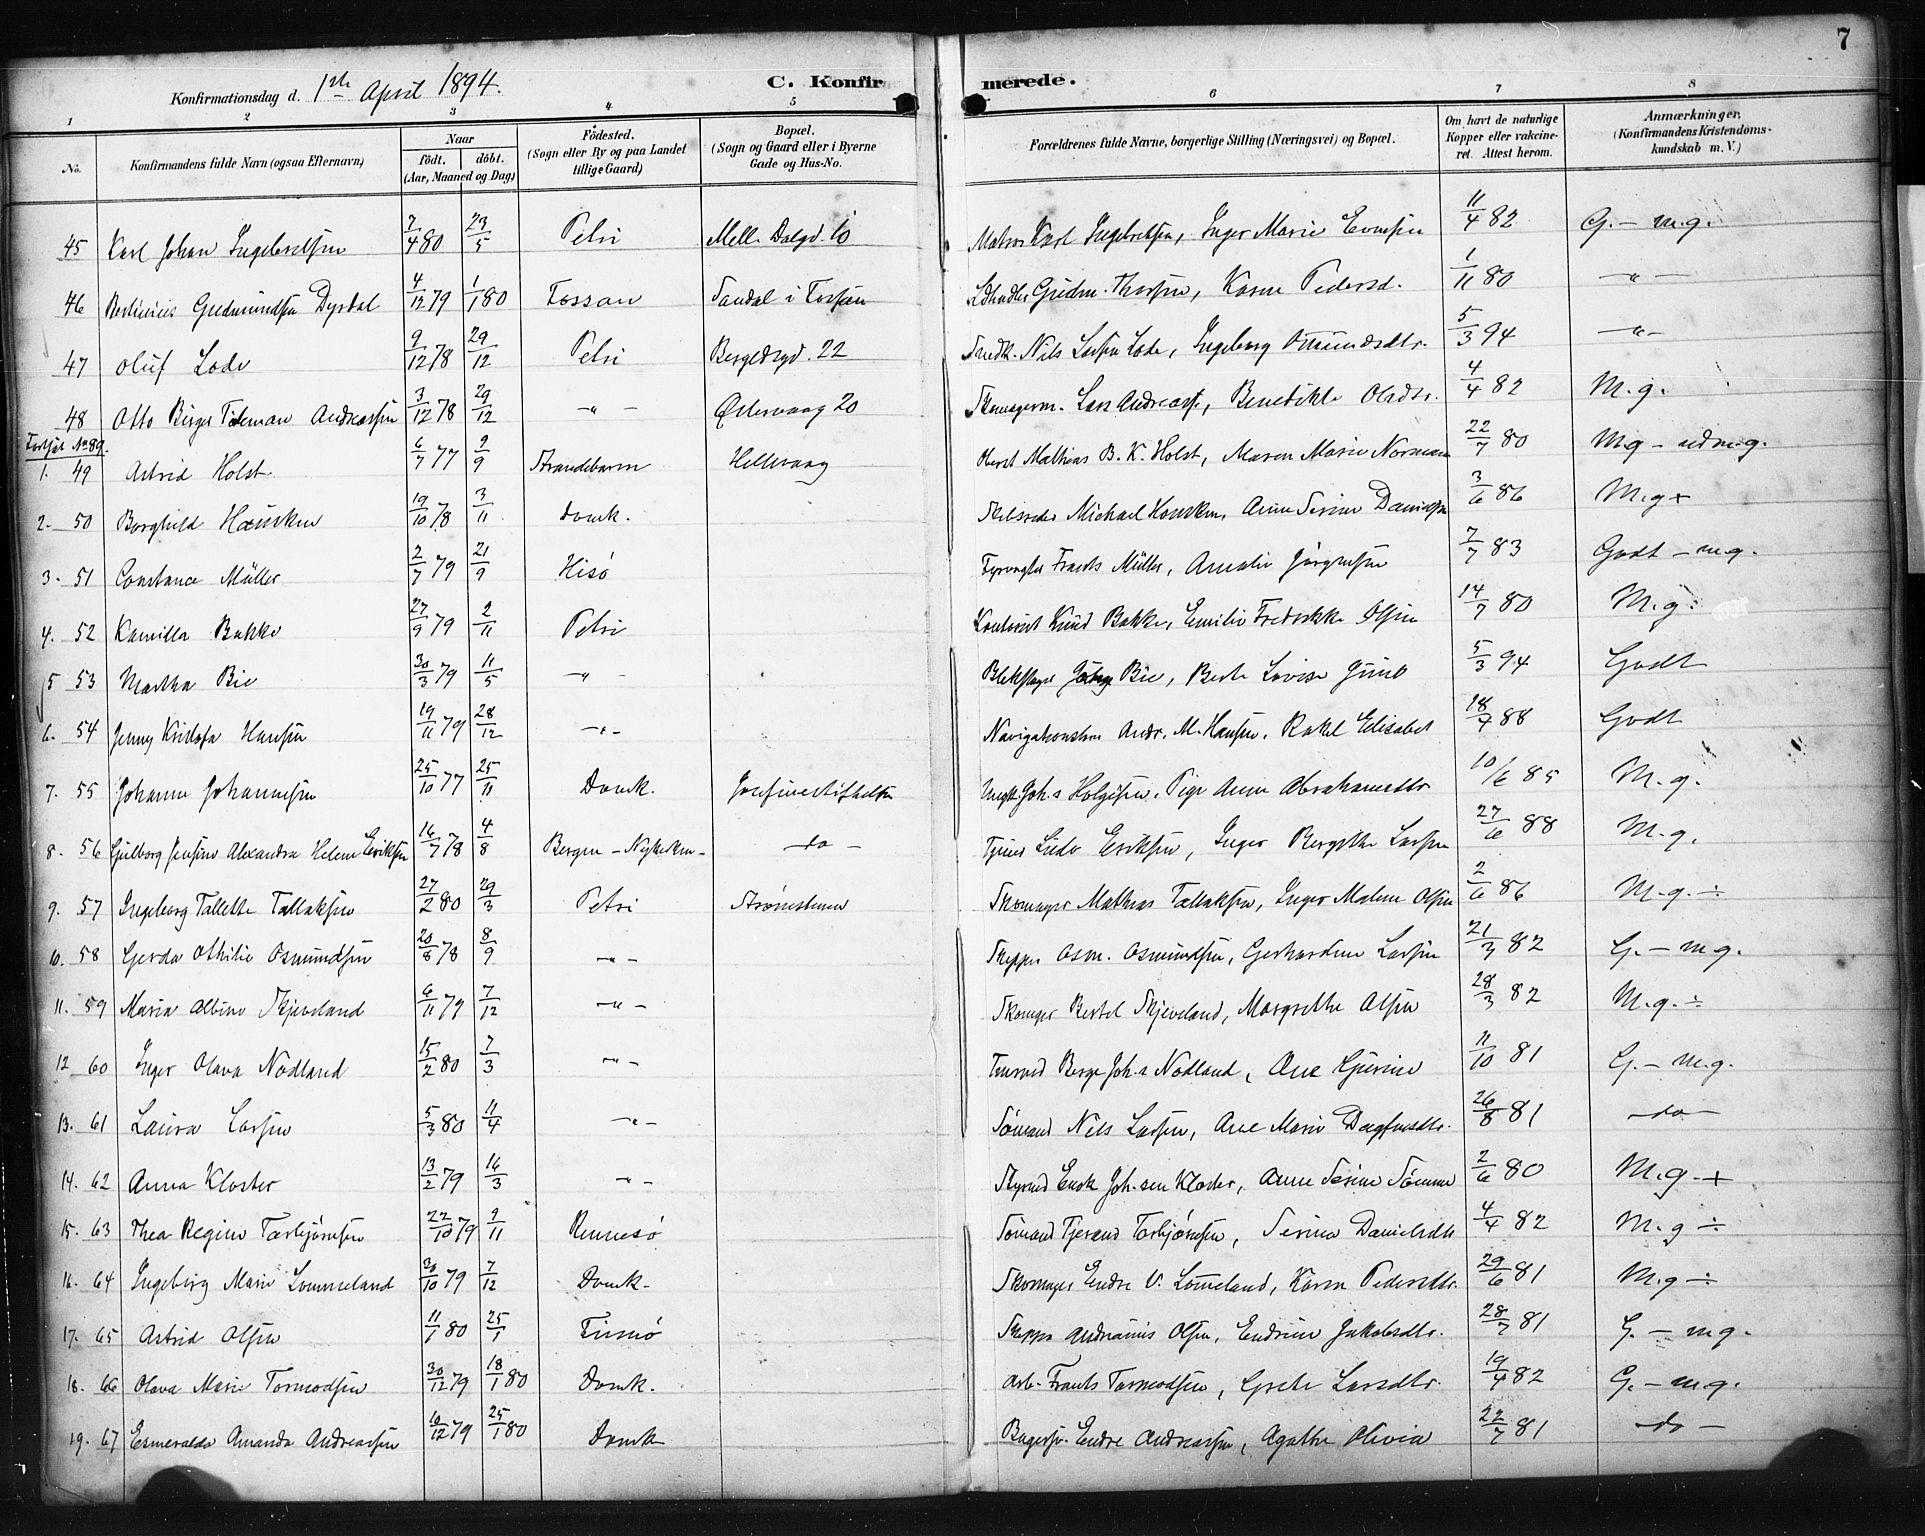 7
Konfirmationsdag d. 1ste April 1894.
C. Konfirmerede.
1 2 3 4 5 6 7 8
No. Konfirmandens fulde Navn (ogsaa Efternavn) Naar født. døbt. (Aar, Maaned og Dag) Fødested. (Sogn eller By og paa Landet tillige Gaard) Bopæl. (Sogn og Gaard eller i Byerne Gade og Hus-No. Forældrenes fulde Navne, borgerlige Stilling (Næringsvei) og Bopæl. Om havt de naturlige Kopper eller vakcineret. Attest herom. Anmærkninger. (Konfirmandens Kristendomskundskab m. V.)
45 Karl Johan Ingebretsen 7/4 80 23/5 Petri Mell. Dalgd. 10 Matros Karl Ingebretsen, Inger Marie Evensen 11/4 82 G. - m.g.
46 Gudmundsen Dyrdal 4/12 79 1/1 80 Fossan i Fossan Gudm. Thorsen, Karen Pedersd. 1/11 80 -"-
47 Oluf Lode 9/12 78 29/12 Petri Bergelsgd. 22 Snedk. Nils Larsen Lode, Ingeborg Omundsdtr. 5/3 94 -"-
48 Otto Birger Tideman Andreassen 3/12 78 29/12 -"- Østervaag 20 Skomagerm. Lars Andreass., Benedikte Olsdtr. 4/4 82 M.g.
1. 49 Astrid Holst. 6/7 77 2/9 Strandebarm Hillevaag Oberst Mathias B. K. Holst, Maren Marie Normann 22/7 80 M.g - udm.g.
2. 50 Borghild Hausken 19/10 78 3/11 Domk. Michael Hausken, Anne Serine Danielsen 3/6 86 M.g +
3. 51 Constance Müller 2/7 79 21/9 Hisö Fyrvogter Frants Müller, Amalie Jörgensen 7/7 83 Godt - m.g.
4. 52 Kamilla Bakke 27/9 79 2/11 Petri Knud Bakke, Emilie Fredrikke Olsen 14/7 80 M.g.
5 53 Martha Bie 30/3 79 11/5 -"- Blikslager Bie, Berte Lovise 5/3 94 Godt
6. 54 Jenny Kristofa Hansen 19/11 79 28/12 -"- Andr. M. Hansen. Rakel Elisabet 18/7 88 Godt
7. 55 Johanne Johannesen 25/10 77 25/11 Domk. Josefinestiftelsen Ungk. Joh.s Holgersen. Pige Anne Abrahamsdtr 10/6 85 M.g.
8. 56 Alexandra Helene Eriksen 16/7 78 4/8 Bergen - Nykirken - do - Eriksen, Inger Bergithe Larsen 27/6 88 M.g.
9. 57 Ingeborg Tallette Tallaksen 27/2 80 29/3 Petri Strømstenen Skomager Mathias Tallaksen, Inger Malene Olsen 2/6 86 M.g. ÷
10. 58 Gerda Othilie Osmundsen 20/8 78 8/9 -"- Skipper Osm. Osmundsen, Gerhardine Larsen 21/3 82 G. - m.g.
11. 59 Maria Albine Skjeveland 6/11 79 7/12 -"- Skomager Bertel Skjeveland, Margrethe Olsen 28/3 82 M.g. ÷
12 60 Inger Olava Nodland 15/2 80 7/3 -"- Børge Joh.s Nodland, Ane Gurine 11/10 81 G. - m.g.
13. 61 Laura Larsen 5/3 80 11/4 -"- Sømand Nils Larsen, Ane Marie Dagfinsdtr. 26/8 81 -do-
14. 62 Anna Kloster 13/2 79 16/3 -"- Styrmd Enok Joh.sen Kloster, Anne Serine Sømme 2/6 80 M.g. +
15. 63 Thea Regine Torbjörnsen 22/10 79 9/11 Rennesö Sømand Tjerand Torbjörnsen, Serina Danielsdtr 4/4 82 M.g ÷
16. 64 Ingeborg Marie Lommeland 30/10 79 7/12 Domk. Skomager Endre V. Lomeland, Karen Pedersdtr. 29/6 81 M.g ÷
17. 65 Astrid Olsen 11/1 80 25/1 Finnö Skipper Andreas Olsen, Endrine Jakobsdtr. 28/7 81 G. - m.g.
18. 66 Olava Marie Tormodsen 30/12 79 18/1 80 Domk. Arb. Frants Tormodsen, Grete Larsdtr. 19/4 82 G. - m.g.
19. 67 Esmeralda Amanda Andreassen 10/12 79 25/1 80 Domk Bagersv. Endre Andreassen, Agathe Olivia 22/7 81 -do-